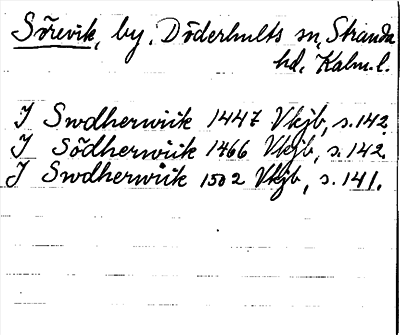 Sörevik, by, Döderhults sn, Stranda
hd, Kalm. l.
J Swdherwiik 1447 Vkjb, s. 142.
J Södherwiik 1466 Vkjb, s. 142.
J Swdherwiik 1502 Vkjb, s. 141.